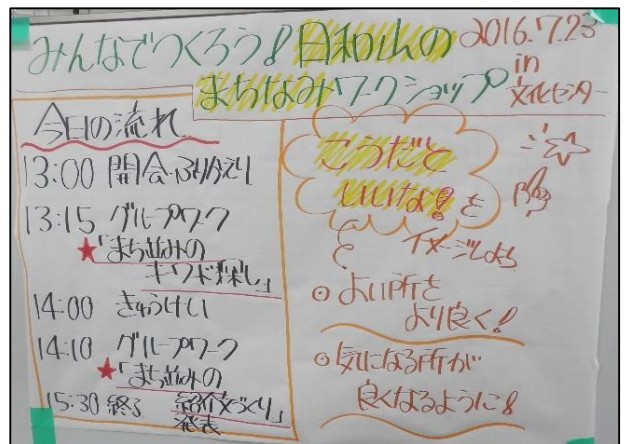 みんなでつくろう♪日和山の
まちなみワークショップ
2016.7.23
in
文化センター
今日の流れ
13:00 開会・ふりかえり
13:15 グループワーク
★「まち並みの
キーワード探し」
14:00 きゅうけい
14:10 グループワーク
★「まち並みの
紹介文づくり」
発表
15:30 終了
こうだと
いいな!を
イメージしよう
◎よい所を
より良く!
◎気になる所が
良くなるように!